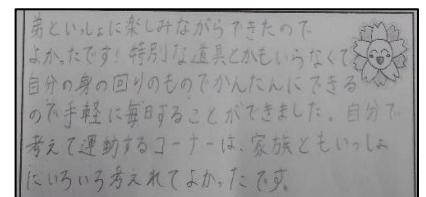 弟といっしょに楽しみながらできたので
よかったです！特別な道具とかもいらなくて
自分の身の回りのものでかんたんにできる
ので手軽に毎日することができました。自分で
考えて運動するコーナーは、家族ともいっしょ
にいろいろ考えれてよかったです。